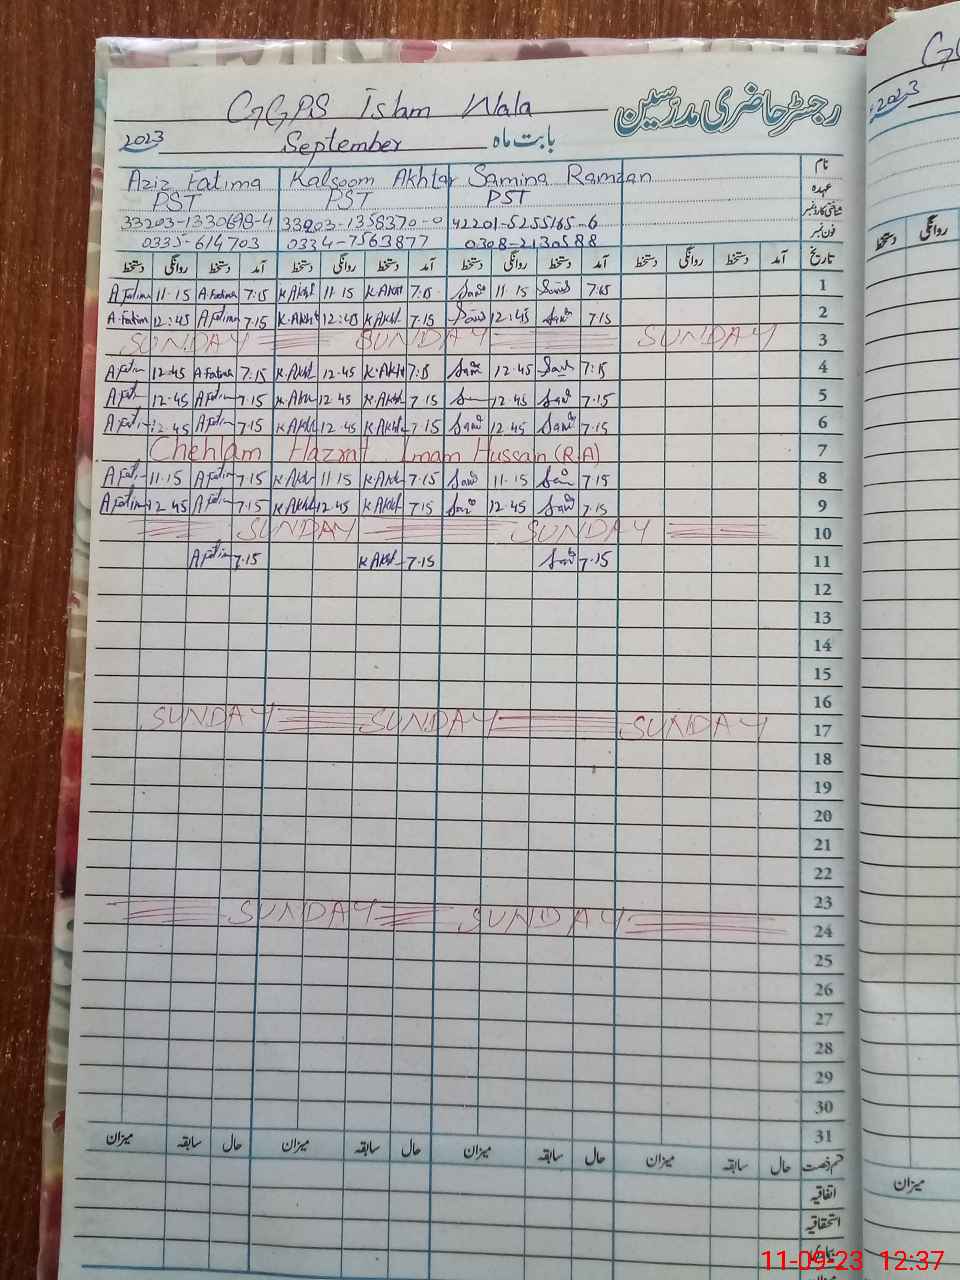 GGPS Islam Wala رجسٹر حاضری مدرسین
2023 September بابت ماہ
Aziz Fatima Kalsoom Akhtar Samina Ramzan نام
PST PST PST عہدہ
33203-1330698-4 33203-1358370-0 42201-5255165-6 شناختی کارڈ نمبر
0335-614703 0334-7563877 0308-2130588 فون نمبر
دستخط روانگی دستخط آمد دستخط روانگی دستخط آمد دستخط روانگی دستخط آمد دستخط روانگی دستخط آمد تاریخ
A Fatima 11.15 A.Fatima 7:15 K Akht 11 15 K Akht 7:15 11 15 7:15 1
A.Fatima 12:45 A Fatima 7.15 K.Akht 12:45 K Akht 7.15 12:45 7 15 2
SUNDAY SUNDAY SUNDAY 3
A Fatim 12.45 A Fatima 7.15 K.Akht 12.45 K.Akht 7:15 12 45 7:15 4
A Fati 12.45 A Fatim 7.15 K Akht 12 45 K Akht 7.15 12.45 7.15 5
A Fatim 12.45 A Fatim 7.15 K Akht 12.45 K Akht 7.15 12.45 7.15 6
Chehlam Hazrat Imam Hussain (R.A) 7
A Fati 11.15 A Fatim 7.15 K Akht 11 15 K Akht 7.15 11.15 7 15 8
A Fatim 12 45 A Fatim 7.15 K Akht 12.45 K Akht 7.15 12.45 7.15 9
SUNDAY SUNDAY 10
A Fatim 7.15 K Akht 7.15 7.15 11
12
13
14
15
16
SUNDAY SUNDAY SUNDAY 17
18
19
20
21
22
23
SUNDAY SUNDAY 24
25
26
27
28
29
30
31
میزان سابقہ حال میزان سابقہ حال میزان سابقہ حال میزان سابقہ حال قسم رخصت
اتفاقیہ
استحقاقیہ
بیماری
2023
دستخط روانگی
میزان
11-09-23 12:37